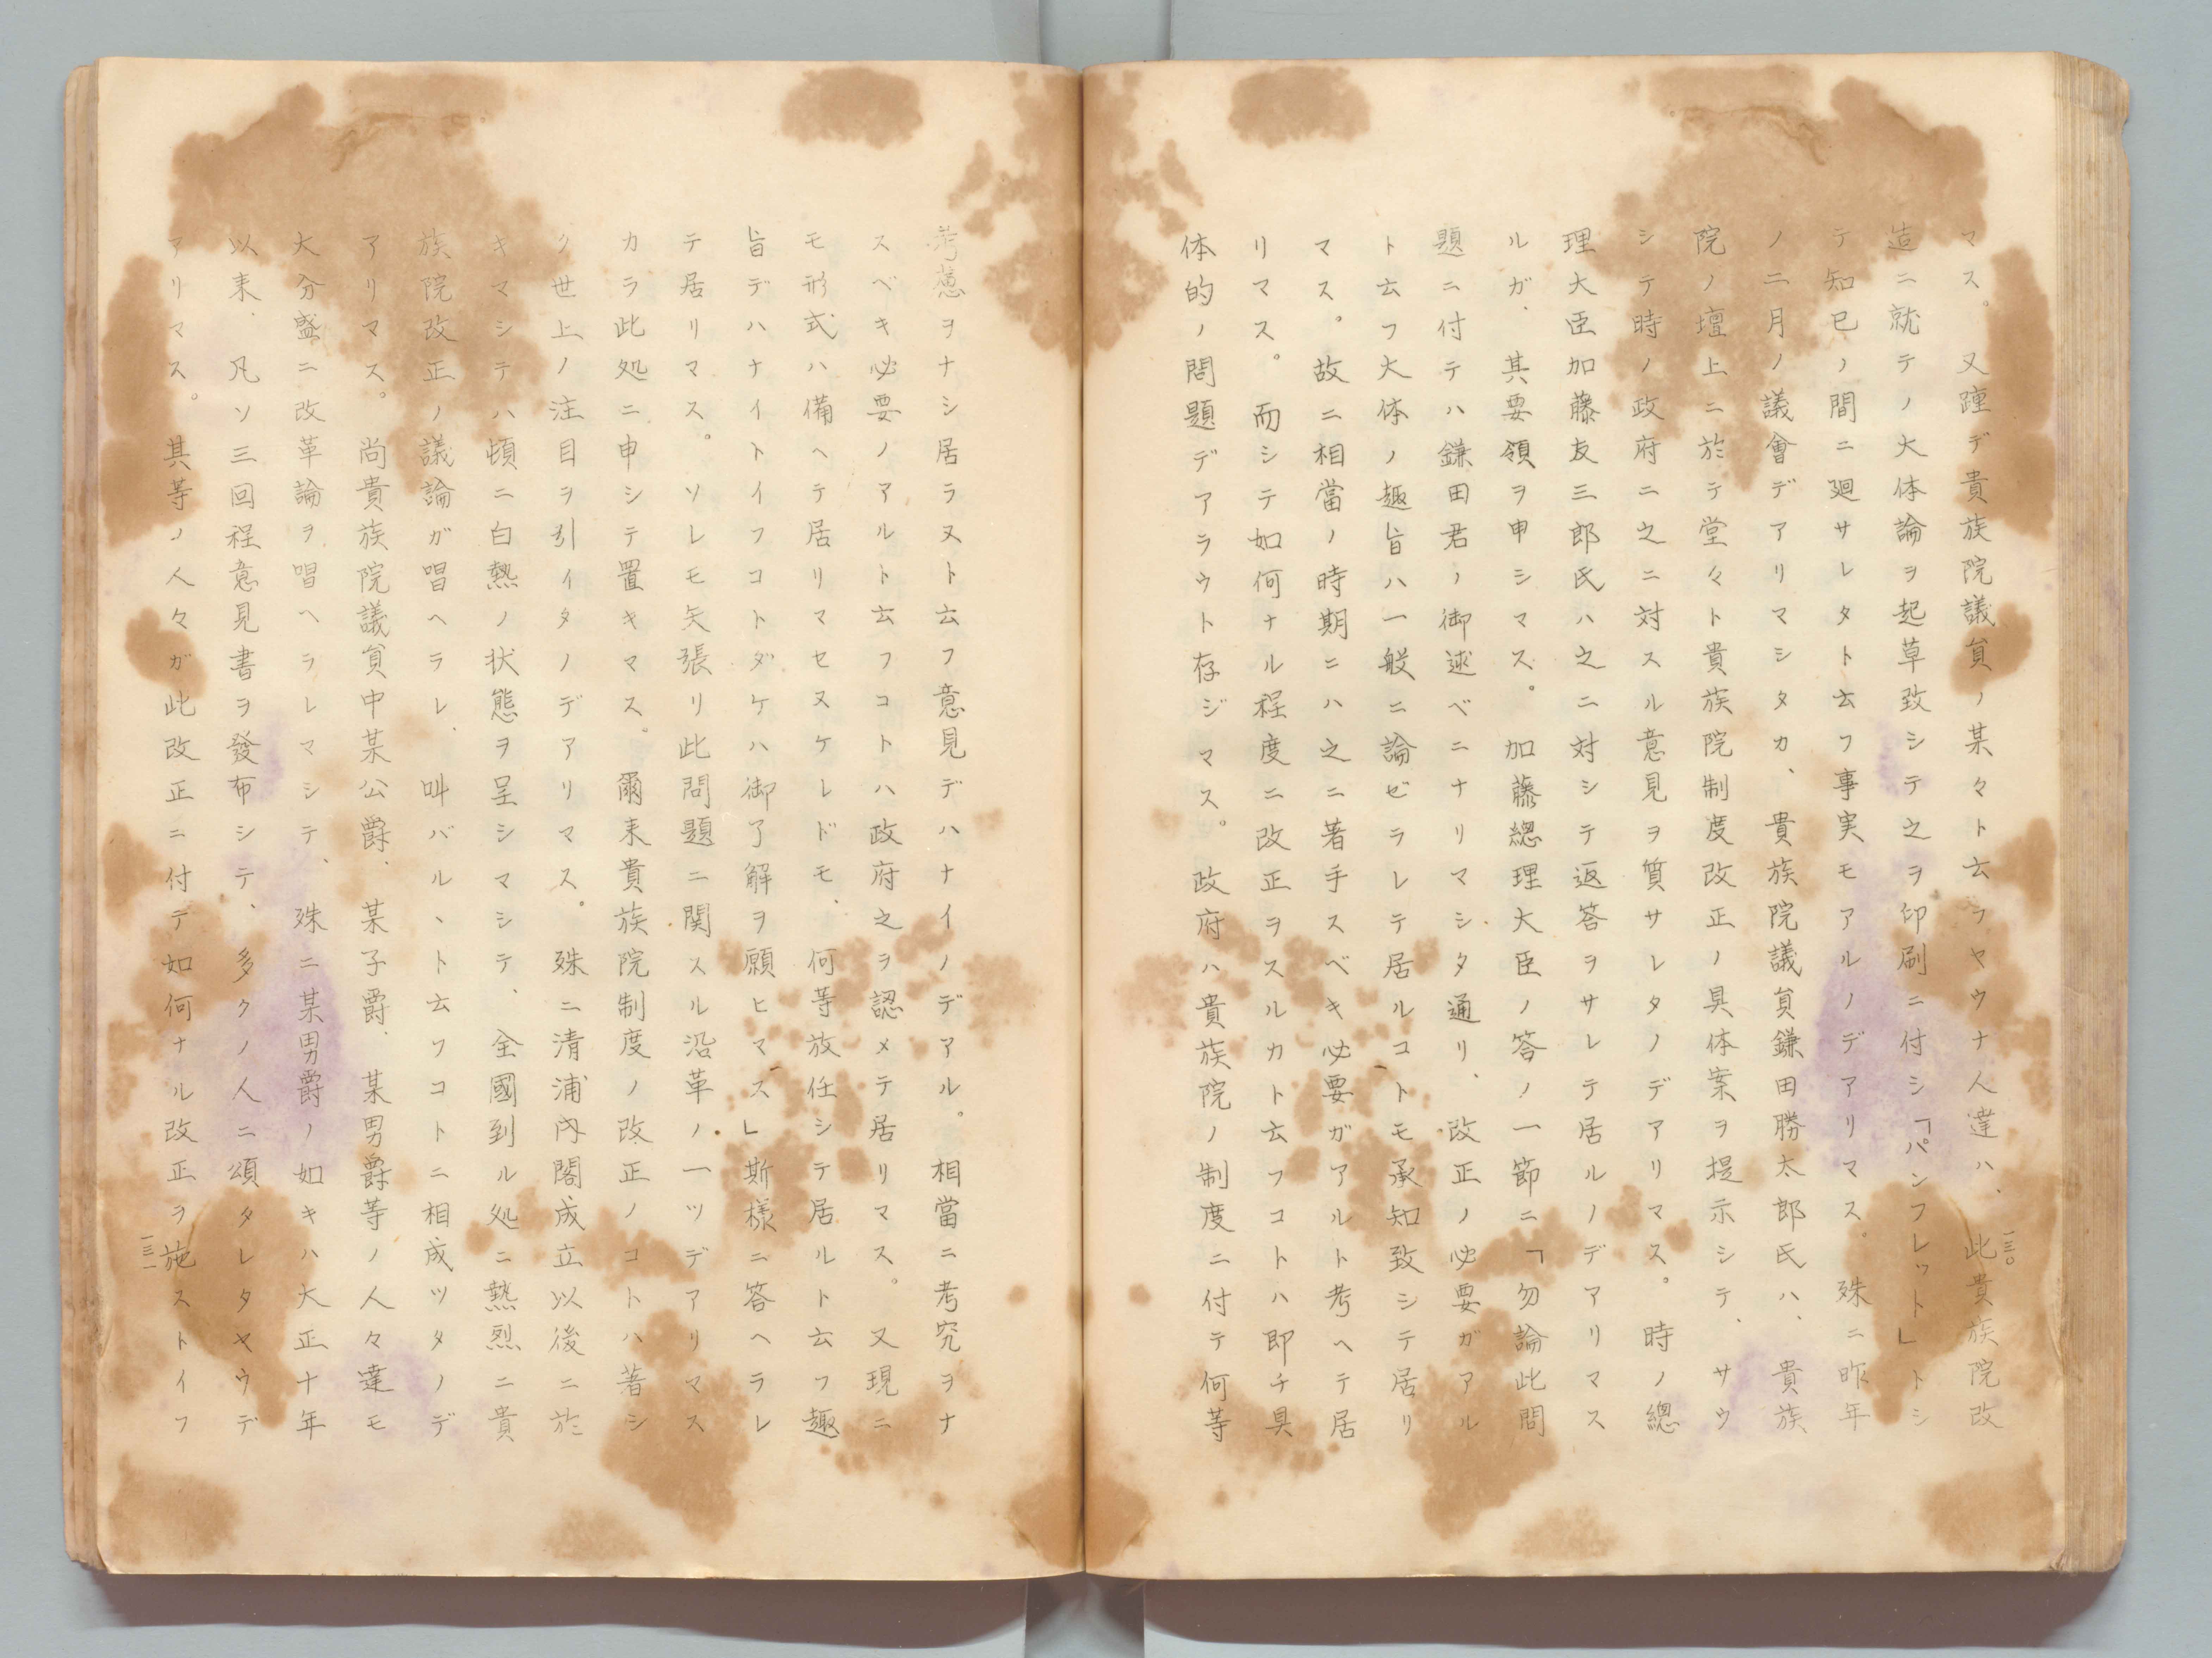 マス。又踵デ貴族院議員ノ某々ト云フヤウナ人達ハ、此貴族院改
造ニ就テノ大体論ヲ起草致シテ之ヲ印刷ニ付シ「パンフレット」トシ
テ知已ノ間ニ廻サレタト云フ事実モアルノデアリマス。殊ニ昨年
ノ二月ノ議會デアリマシタカ、貴族院議員鎌田勝太郎氏ハ、貴族
院ノ壇上ニ於テ堂々ト貴族院制度改正ノ具体案ヲ提示シテ、サウ
シテ時ノ政府ニ之ニ対スル意見ヲ質サレタノデアリマス。時ノ總
理大臣加藤友三郎氏ハ之ニ対シテ返答ヲサレテ居ルノデアリマス
ルガ、其要領ヲ申シマス。加藤總理大臣ノ答ノ一節ニ「勿論此問
題ニ付テハ鎌田君ノ御述ベニナリマシタ通リ、改正ノ必要ガアル
ト云フ大体ノ趣旨ハ一般ニ論ゼラレテ居ルコトモ承知致シテ居リ
マス。故ニ相當ノ時期ニハ之ニ著手スベキ必要ガアルト考ヘテ居
リマス。而シテ如何ナル程度ニ改正ヲスルカト云フコトハ即チ具
体的ノ問題デアラウト存ジマス。政府ハ貴族院ノ制度ニ付テ何等
一三〇
考慮ヲナシ居ラヌト云フ意見デハナイノデアル。相當ニ考究ヲナ
スベキ必要ノアルト云フコトハ政府之ヲ認メテ居リマス。又現ニ
モ形式ハ備ヘテ居リマセヌケレドモ、何等放任シテ居ルト云フ趣
旨デハナイトイフコトダケハ御了解ヲ願ヒマス」斯様ニ答ヘラレ
テ居リマス。ソレモ矢張リ此問題ニ関スル沿革ノ一ツデアリマス
カラ此処ニ申シテ置キマス。爾来貴族院制度ノ改正ノコトハ著シ
ク世上ノ注目ヲ引イタノデアリマス。殊ニ清浦内閣成立以後ニ於
キマシテハ頓ニ白熱ノ状態ヲ呈シマシテ、全國到ル処ニ熱烈ニ貴
族院改正ノ議論ガ唱ヘラレ、叫バルヽト云フコトニ相成ツタノデ
アリマス。尚貴族院議員中某公爵、某子爵、某男爵等ノ人々達モ
大分盛ニ改革論ヲ唱ヘラレマシテ、殊ニ某男爵ノ如キハ大正十年
以来、凡ソ三回程意見書ヲ發布シテ、多クノ人ニ頒タレタヤウデ
アリマス。其等ノ人々ガ此改正ニ付デ如何ナル改正ヲ施ストイフ
一三一